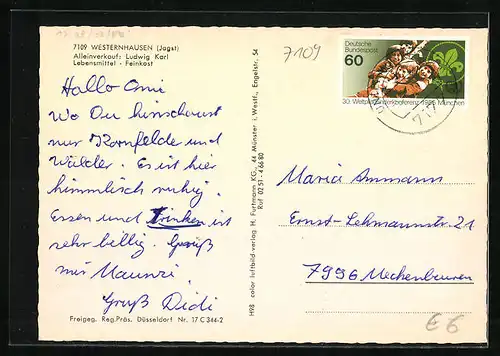 7109 WESTERNHAUSEN (Jagst)
Alleinverkauf: Ludwig Karl
Lebensmittel - Feinkost
Hallo Omi
wo Du hinschaust
nur Kornfelder und
Wälder. Es ist hier
himmlisch ruhig.
Essen und trinken ist
sehr billig. Grüß
mir
Gruß Didi
Freigeg. Reg. Präs. Düsseldorf Nr. 17 C 344-2
HRB color luftbild-verlag H. Furtmann KG., 44 Münster i. Westf., Engelstr. 54
Ruf 02 51 - 4 66 80
7109
Deutsche
Bundespost
60
30. Weltpfadfinderkonferenz 1985 München
Maria Ammann
Ernst-Lehmannstr. 21
7996 Meckenbeuren
€ 6